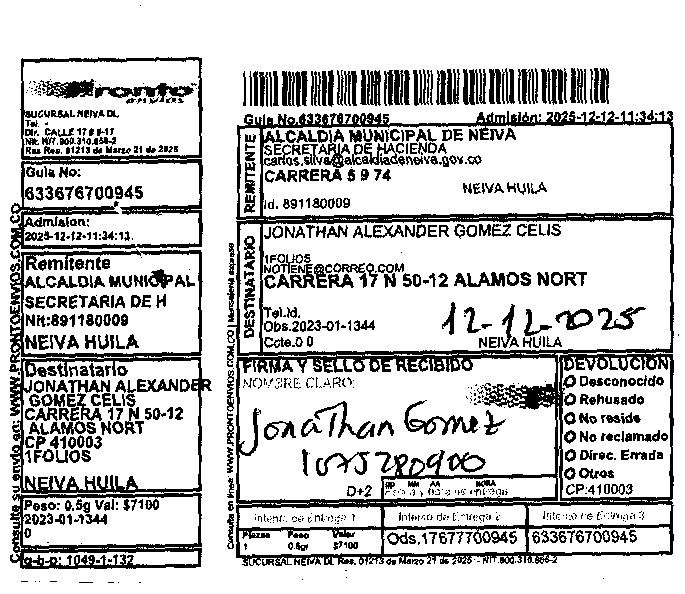 Pronto
envios
SUCURSAL NEIVA DL
Tel. -
Dir. CALLE 17 8 8-17
Nit: NIT.900.310.856-2
Res Res. 01213 de Marzo 21 de 2025
Guia No:
633676700945
Admision:
2025-12-12-11:34:13
Remitente
ALCALDIA MUNICIPAL
SECRETARIA DE H
Nit:891180009
NEIVA HUILA
Destinatario
JONATHAN ALEXANDER
GOMEZ CELIS
CARRERA 17 N 50-12
ALAMOS NORT
CP 410003
1FOLIOS
NEIVA HUILA
Peso: 0.5g Val: $7100
2023-01-1344
0
g-b-p: 1049-1-132
Consulte su envio en: WWW.PRONTOENVIOS.COM.CO
Guia No.633676700945 Admisión: 2025-12-12-11:34:13
REMITENTE
ALCALDIA MUNICIPAL DE NEIVA
SECRETARIA DE HACIENDA
carlos.silva@alcaldiadeneiva.gov.co
CARRERA 5 9 74
NEIVA HUILA
Id. 891180009
DESTINATARIO
JONATHAN ALEXANDER GOMEZ CELIS
1FOLIOS
NOTIENE@CORREO.COM
CARRERA 17 N 50-12 ALAMOS NORT
Tel.Id.
Obs.2023-01-1344
12-12-2025
Ccte.0 0
NEIVA HUILA
FIRMA Y SELLO DE RECIBIDO
NOMBRE CLARO:
Jonathan Gomez
1075280900
D+2
DD MM AA HORA
Fecha y hora de entrega
DEVOLUCION
Desconocido
Rehusado
No reside
No reclamado
Direc. Errada
Otros
CP:410003
Intento de Entrega 1 Intento de Entrega 2 Intento de Entrega 3
Piezas Peso Valor
1 0.5gr $7100
Ods.17677700945 633676700945
SUCURSAL NEIVA DL Res. 01213 de Marzo 21 de 2025 - NIT.900.310.856-2
Consulta en linea: WWW.PRONTOENVIOS.COM.CO | Mensajeria expresa